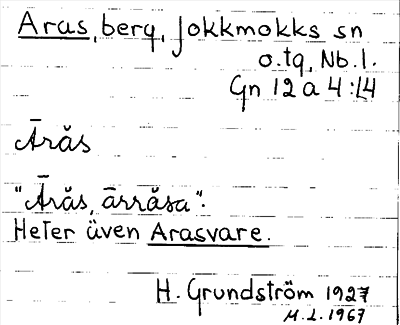 Aras, berg, Jokkmokks sn
o. tg, Nb. l.
Gn 12 a 4:14
Ārăs
"Ārăs, ārrăsa".
Heter även Arasvare.
H. Grundström 1927
M.L. 1967